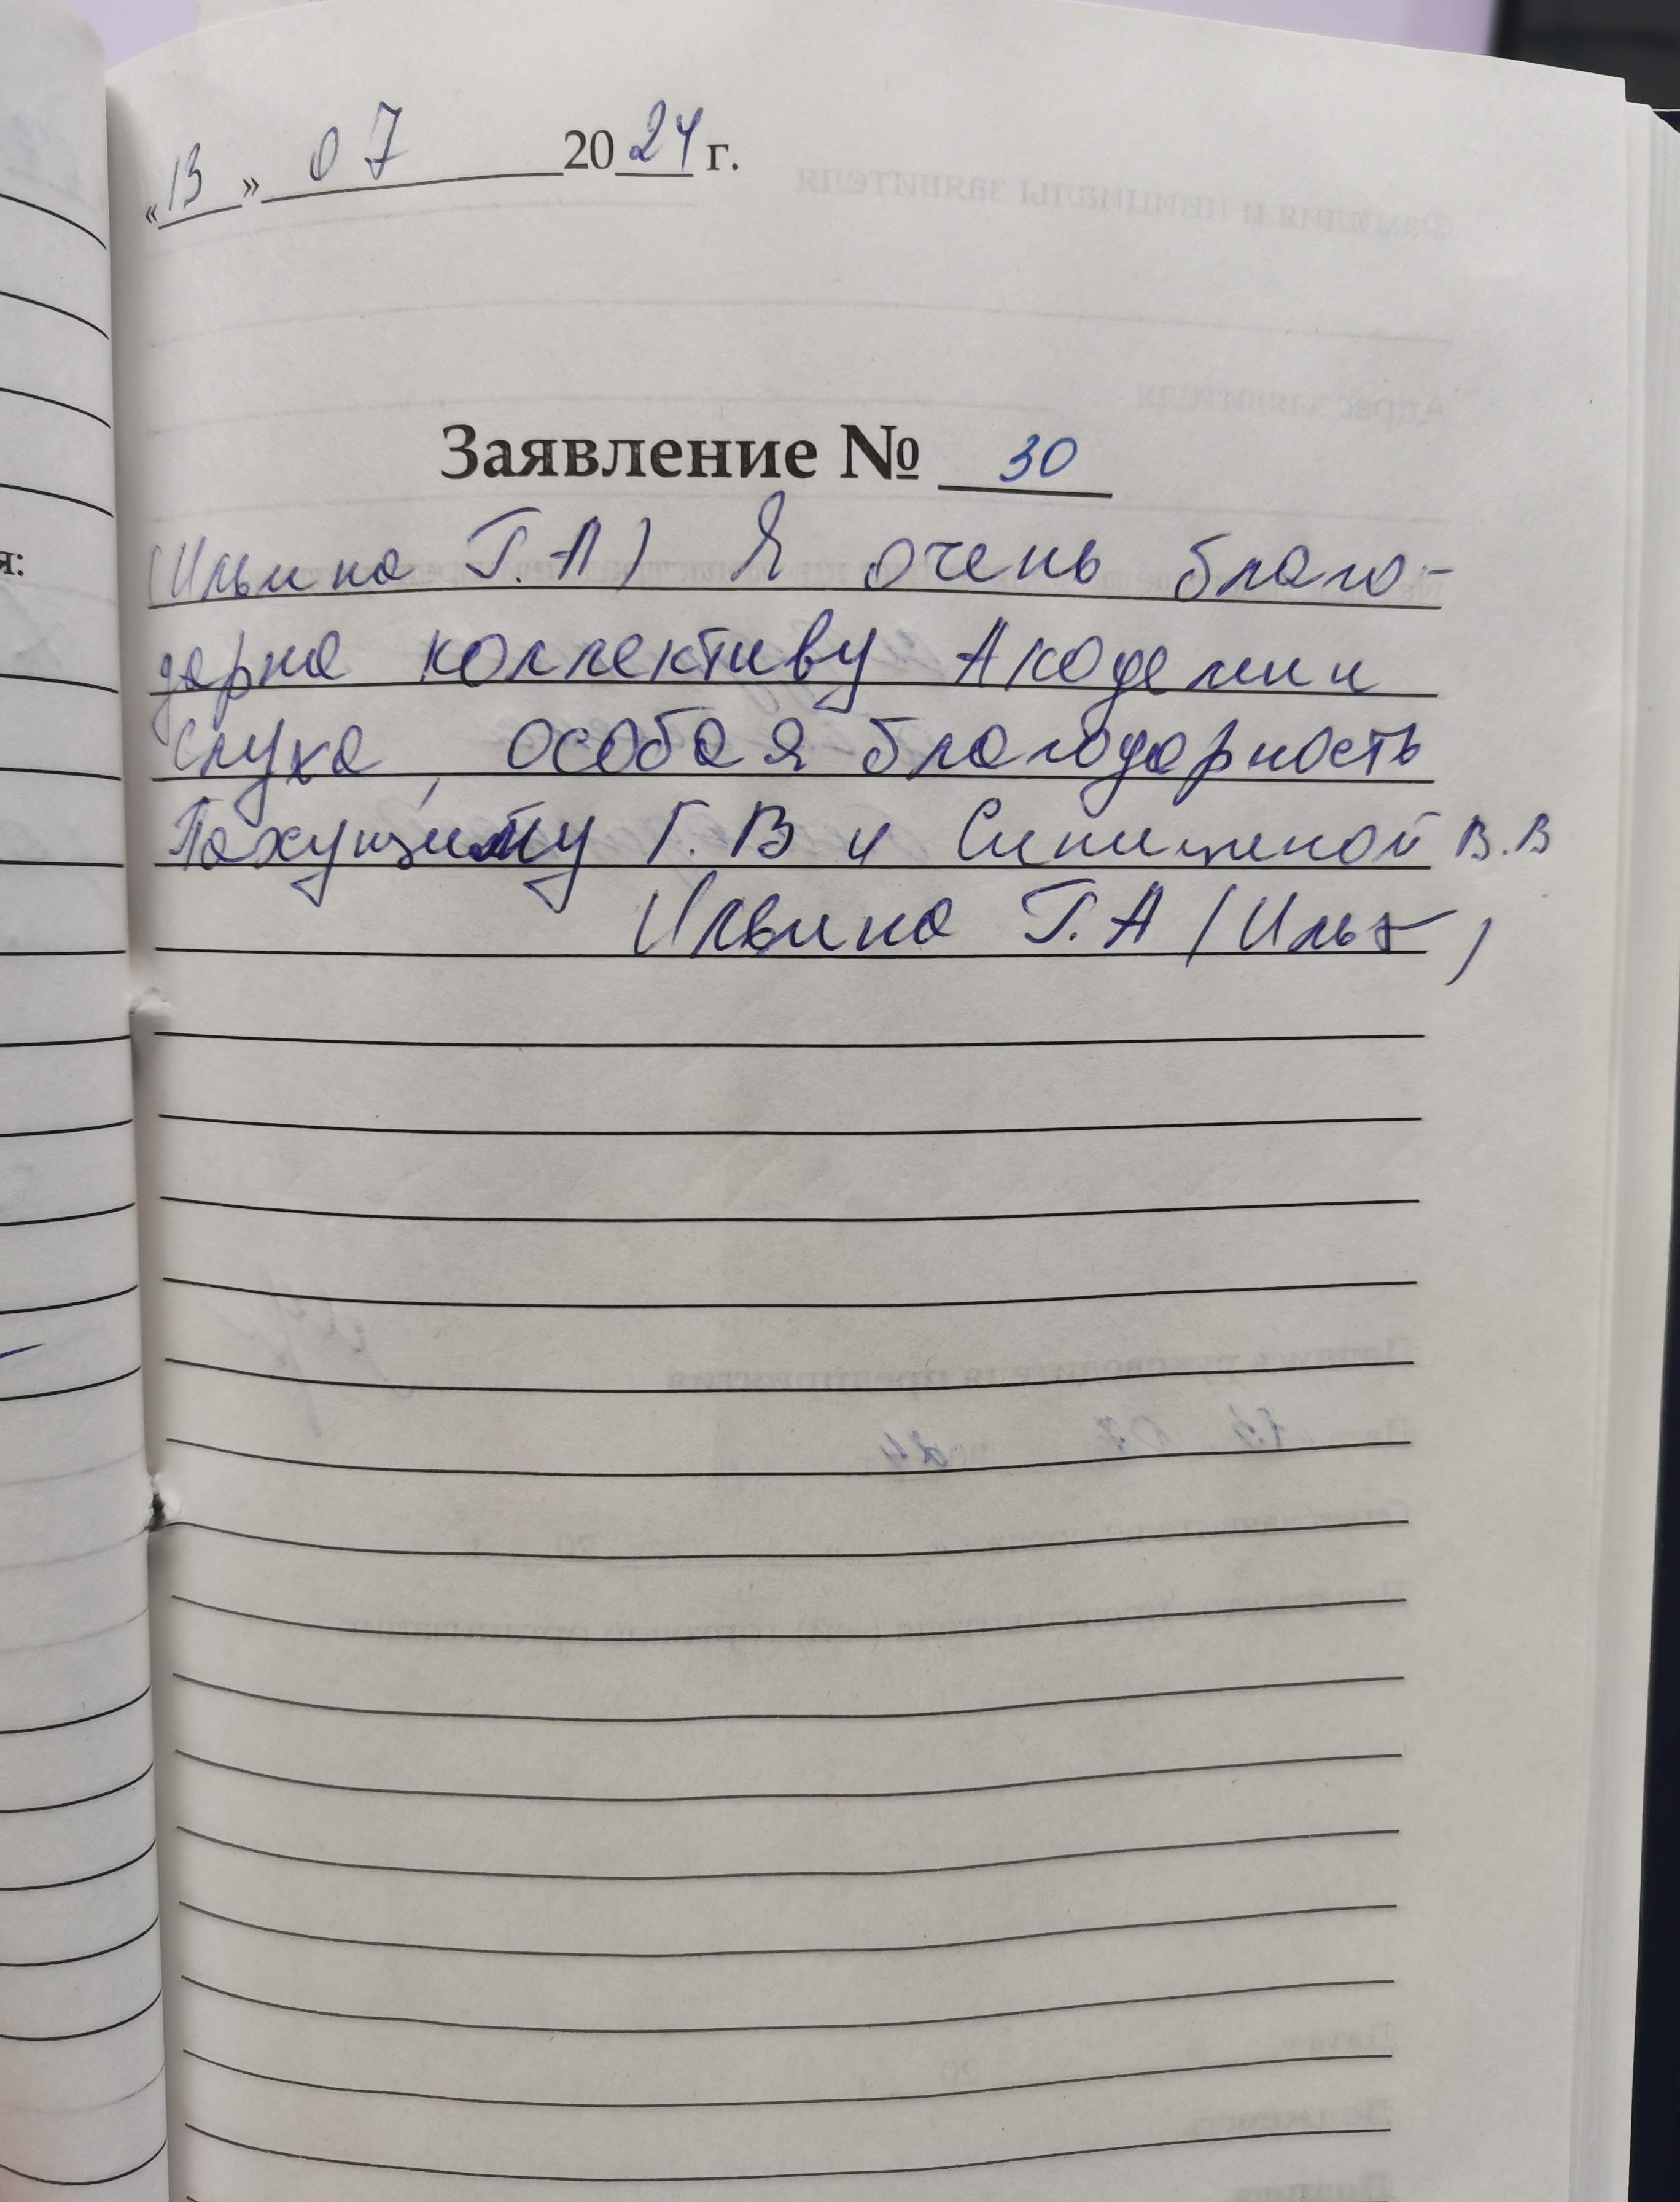 «13» 07 2024 г.
Заявление № 30
(Ильина Г.А) Я очень благо-
дарна коллективу Академии
слуха, особая благодарность
Пахущему Г.В и Синициной В.В
Ильина Г.А (Иль)
я: